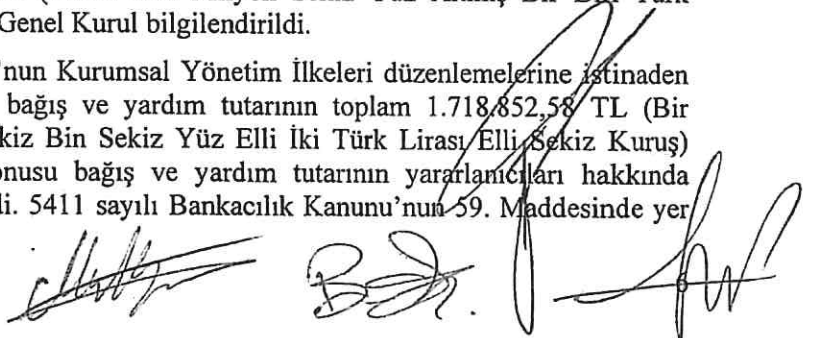 Genel Kurul bilgilendirildi.
'nun Kurumsal Yönetim İlkeleri düzenlemelerine istinaden
bağış ve yardım tutarının toplam 1.718.852,58 TL (Bir
kiz Bin Sekiz Yüz Elli İki Türk Lirası Elli Sekiz Kuruş)
onusu bağış ve yardım tutarının yararlanıcıları hakkında
li. 5411 sayılı Bankacılık Kanunu'nun 59. Maddesinde yer